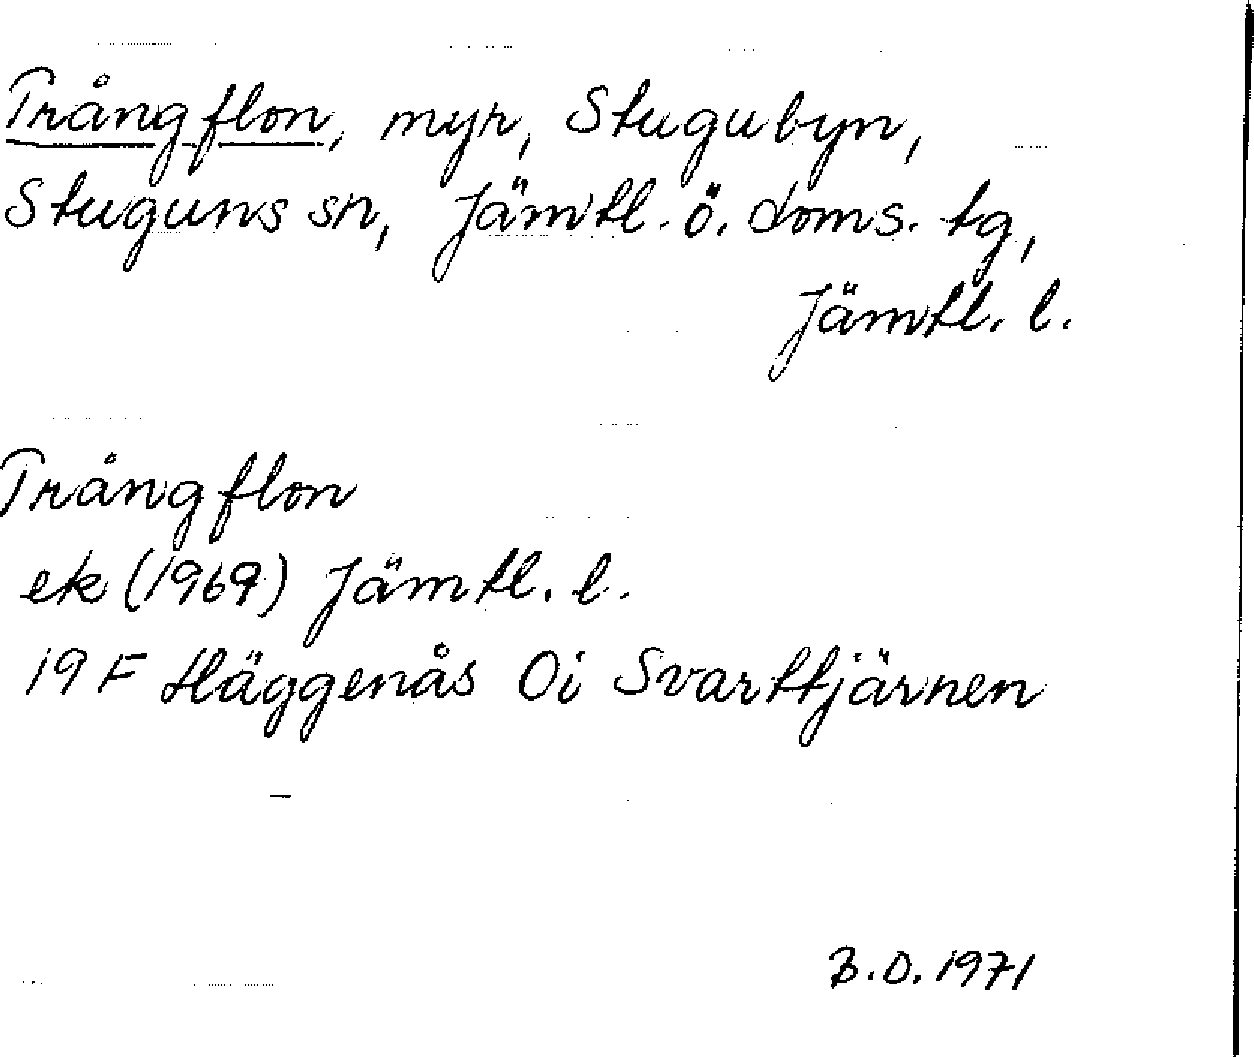 Trångflon, myr, Stugubyn,
Stuguns sn, Jämtl. ö. doms. tg,
Jämtl. l.
Trångflon
ek (1969) Jämtl. l.
19 F Häggenås Oi Svarttjärnen
B.D. 1971